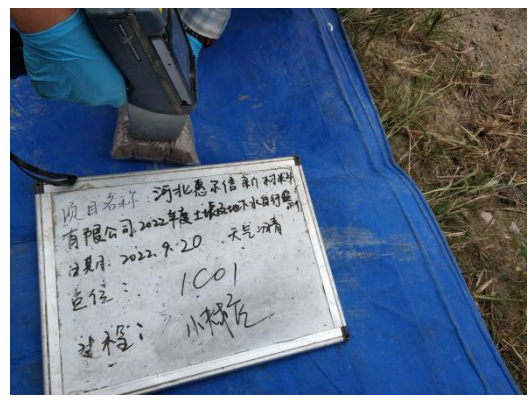 项目名称:河北惠尔信新材料
有限公司2022年度土壤及地下水自行监测
日期:2022.9.20 天气:晴
点位: 1C01
过程: